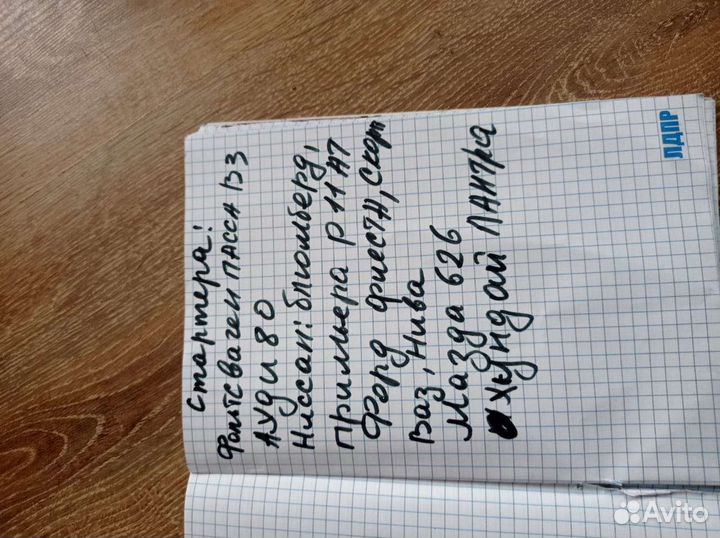 Стартера!
Фольтсваген ПАССА В3
АУДИ 80
Ниссан: блюмберд,
Примьера Р 11 АТ
Форд фиеста, скорп
Ваз, Нива
Мазда 626
Хундай ЛАНТРА
ЛДПР
Avito